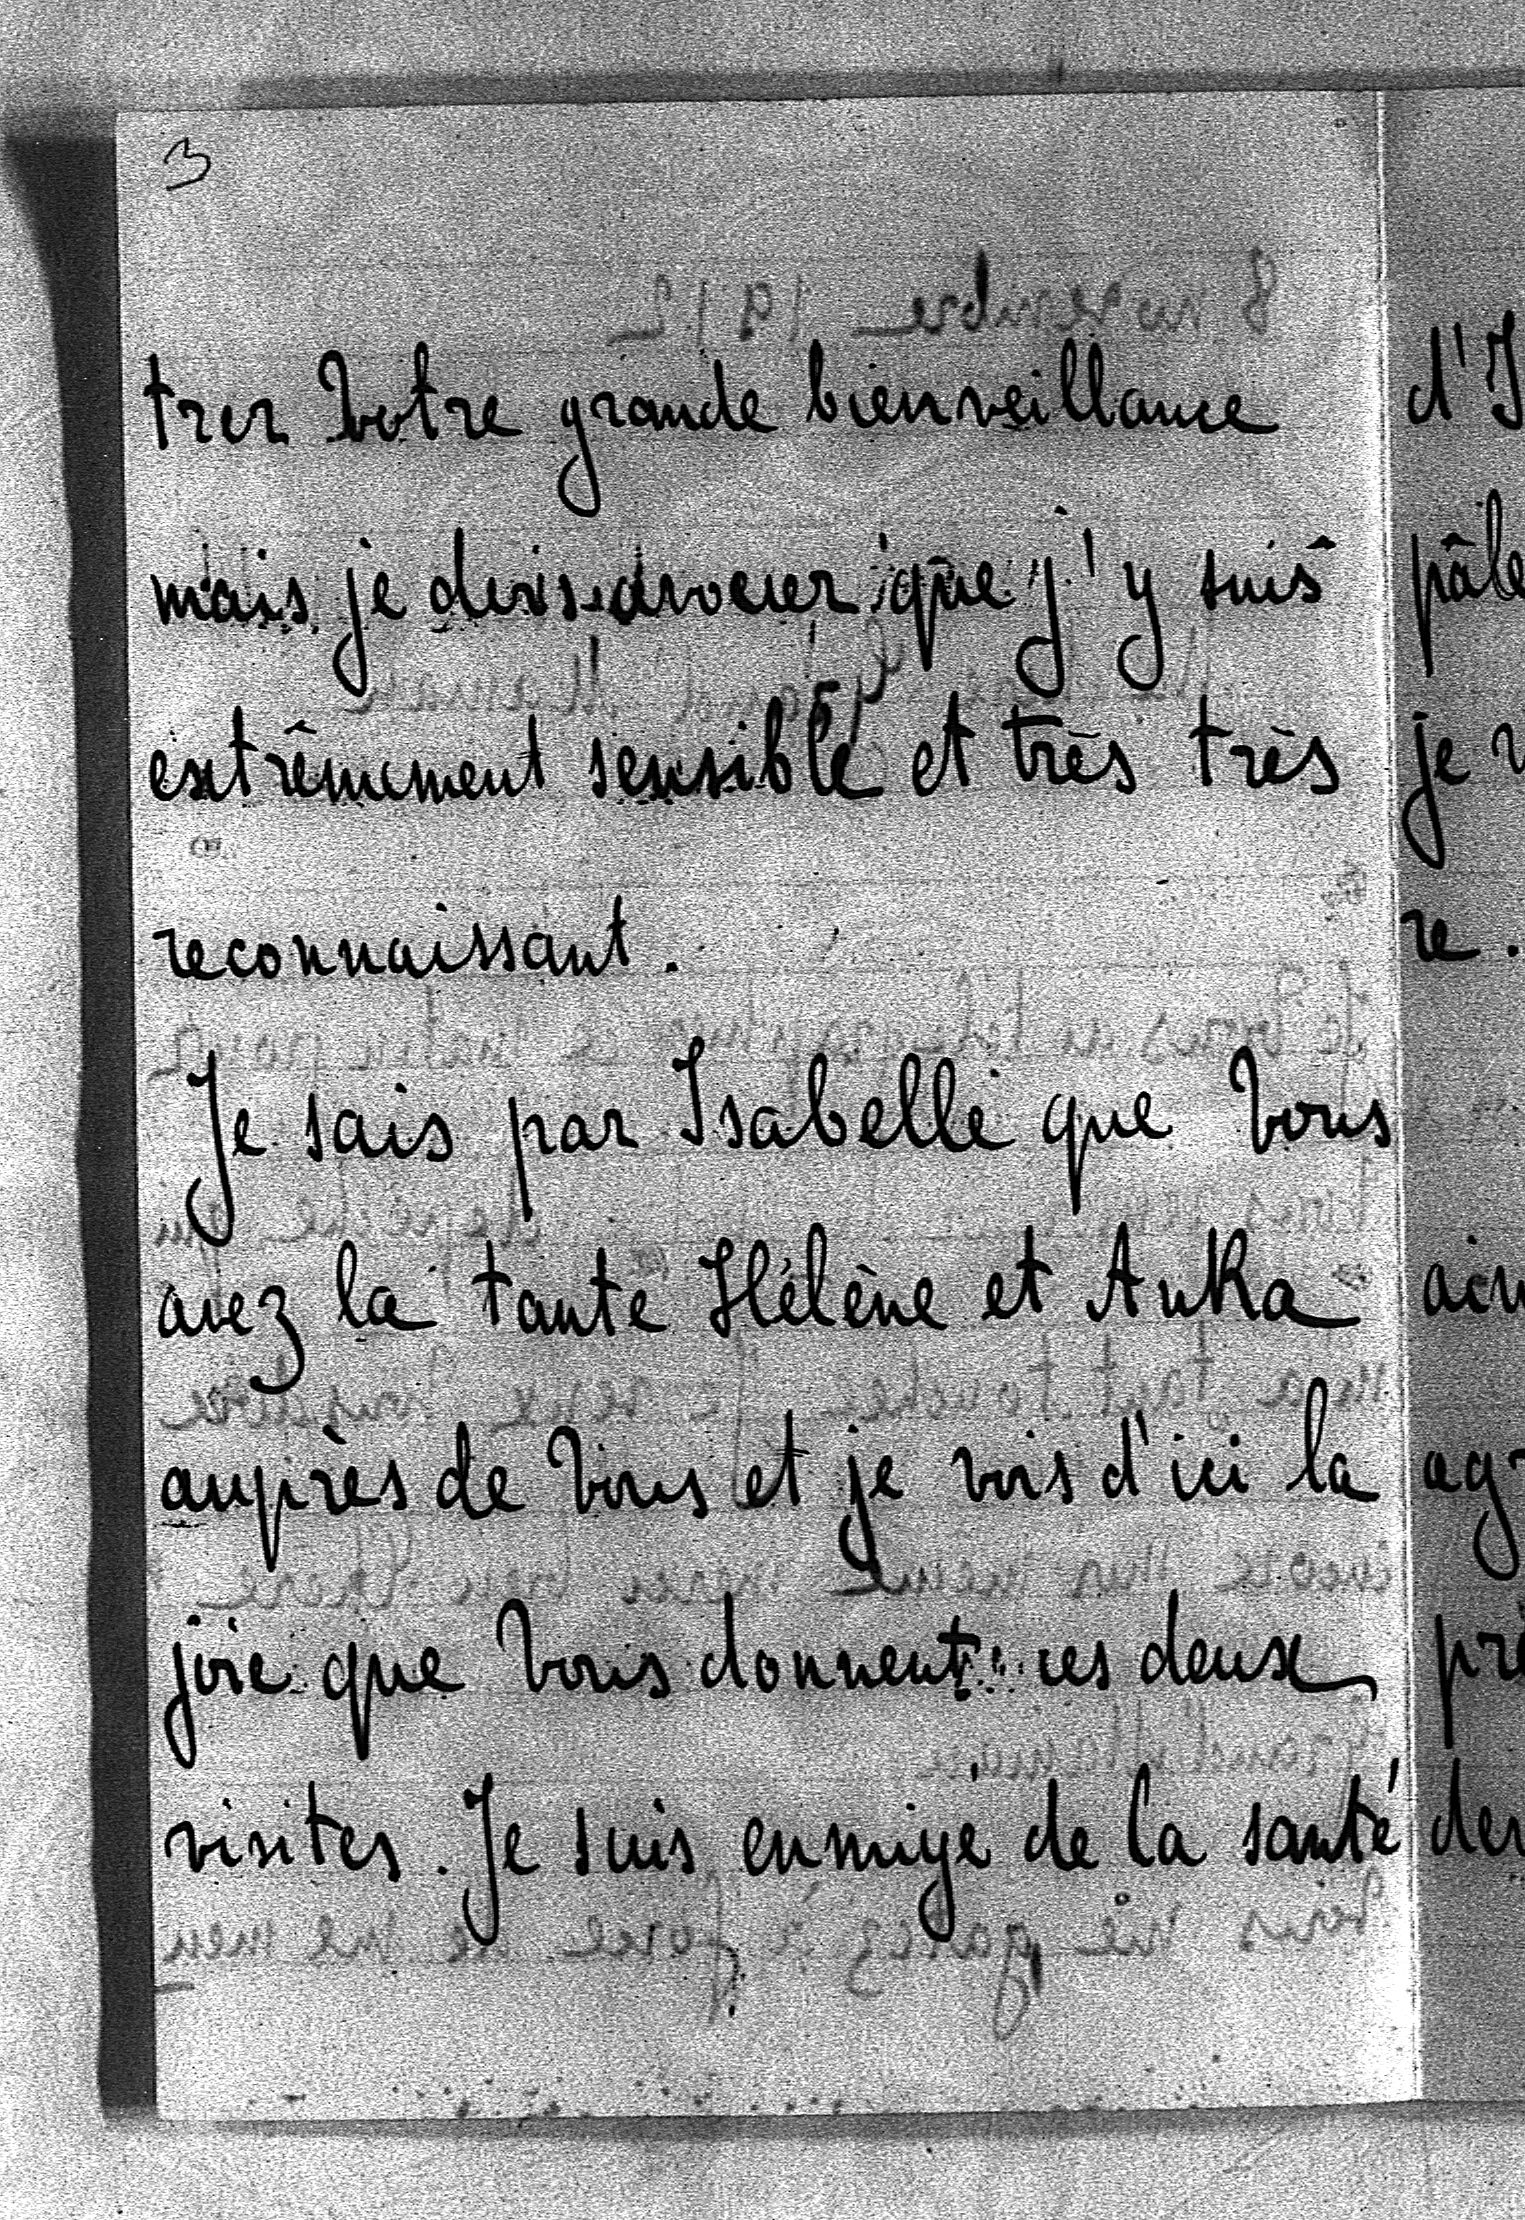 3
trer Votre grande bienveillance
mais je dois avouer que j'y suis
extrêmement sensible et très très
reconnaissant.
Je sais par Isabelle que Vous
avez la tante Hélène et Anka
auprès de Vous et je vois d'ici la
joie que Vous donnent ces deux
visites. Je suis ennuyé de la santé
d'I
pâle
je v
re.
ain
agr
prè
der